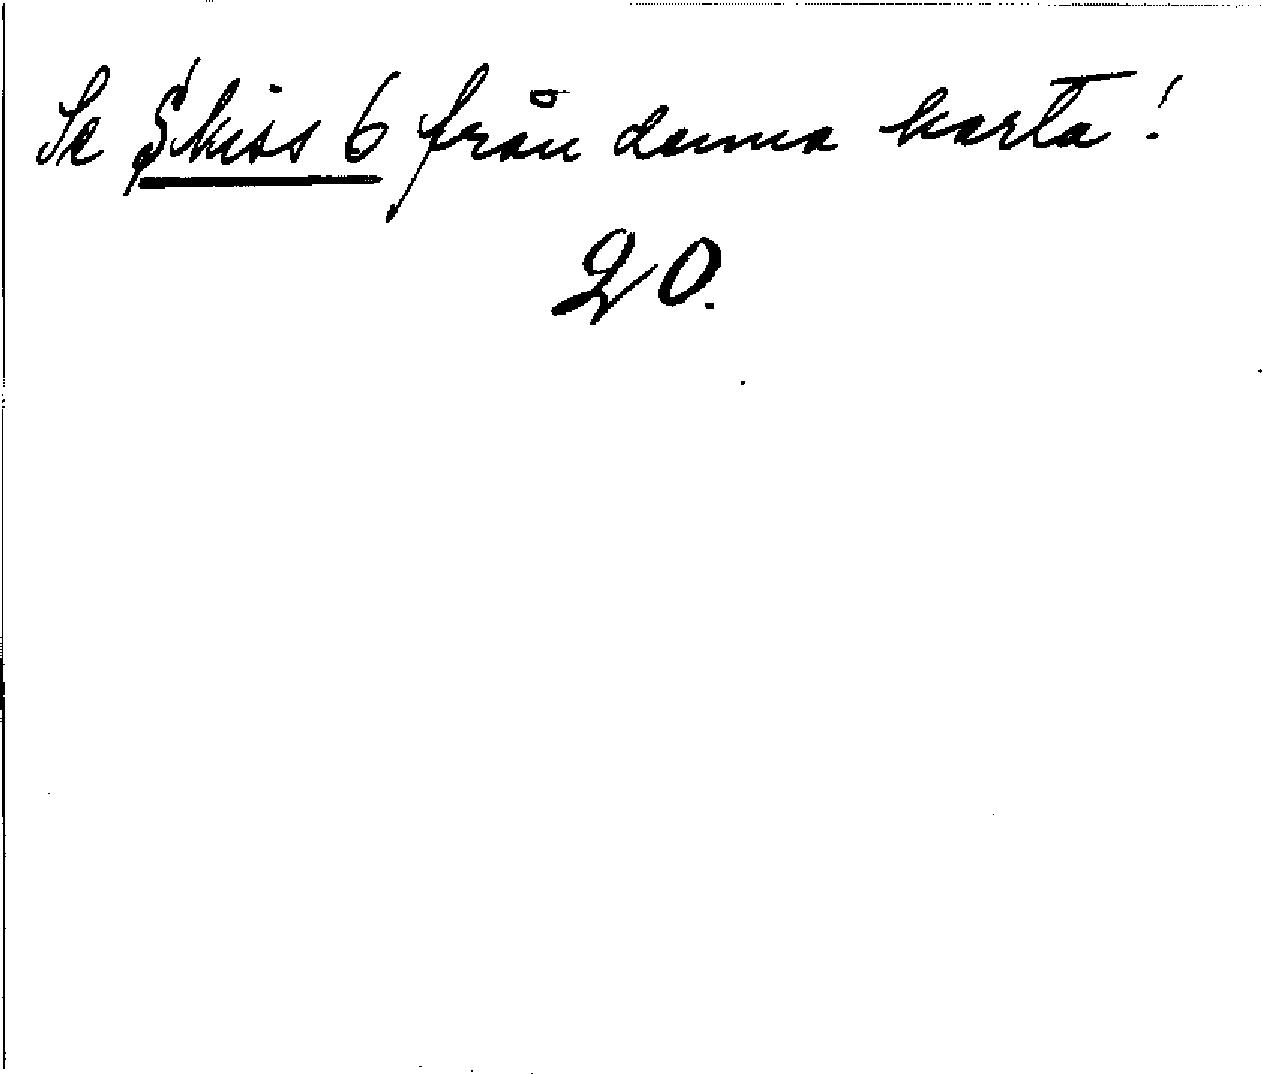 Se Skiss 6 från denna karta!
20.